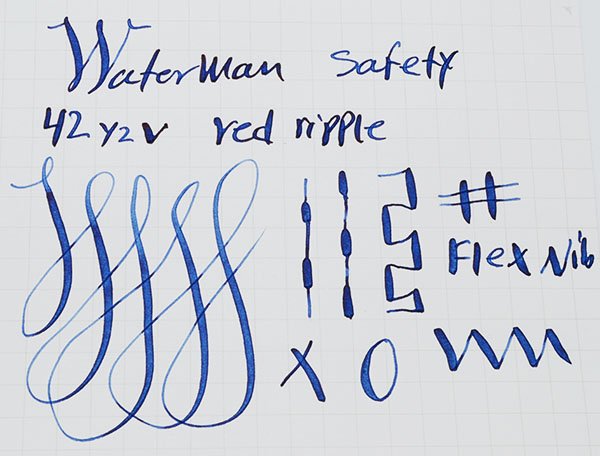 Waterman Safety
42 Y2 V red ripple
#
Flex Nib
X O